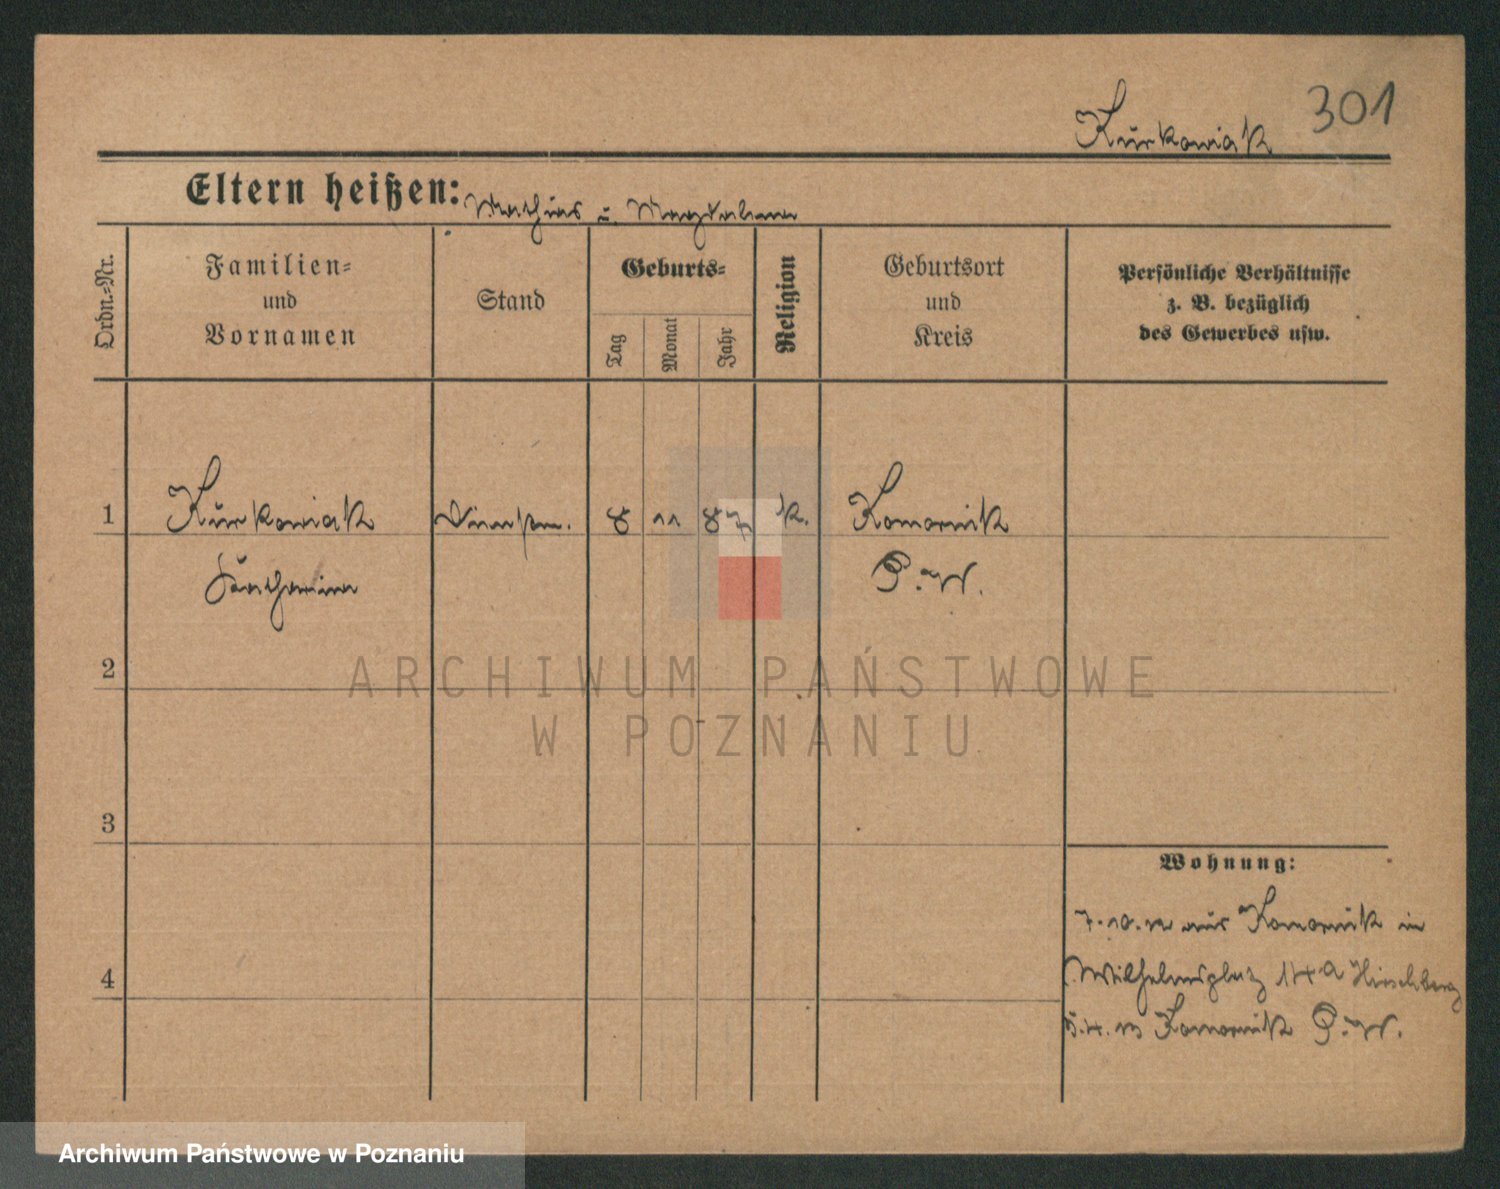 Kurkowiak 301
Eltern heißen: Mathias u. Magdalena
Ordn.-Nr.
Familien-
und
Vornamen
Stand
Geburts-
Tag
Monat
Jahr
Religion
Geburtsort
und
Kreis
Persönliche Verhältnisse
z. B. bezüglich
des Gewerbes usw.
1 Kurkowiak 8 11 87 k. Komornik
Katharina P. W.
2
ARCHIWUM PAŃSTWOWE
W POZNANIU
3
Wohnung:
7.10.12 aus Komornik in
4 Wilhelmsplatz 14a Hirschberg
5.4.13 Komornik P. W.
Archiwum Państwowe w Poznaniu